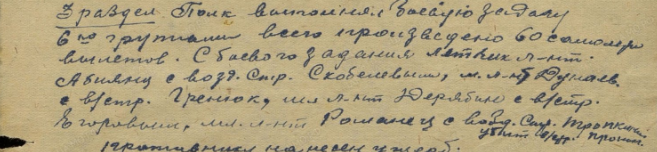 3 раздел Полк выполнял боевую задачу
6ю группами всего произведено 60 самолето
вылетов. С боевого задания летчик л-нт.
Абиянц с возд. Стр. Скобелевым, м.л-нт Дунаев.
с в/стр. Гренюк, мл л-нт Дерябин с в/стр.
Егоровым, мл. л-нт Романец с возд. Стр. Тропкиным
убит в/стр. Прошин.
противнику нанесен ущерб.